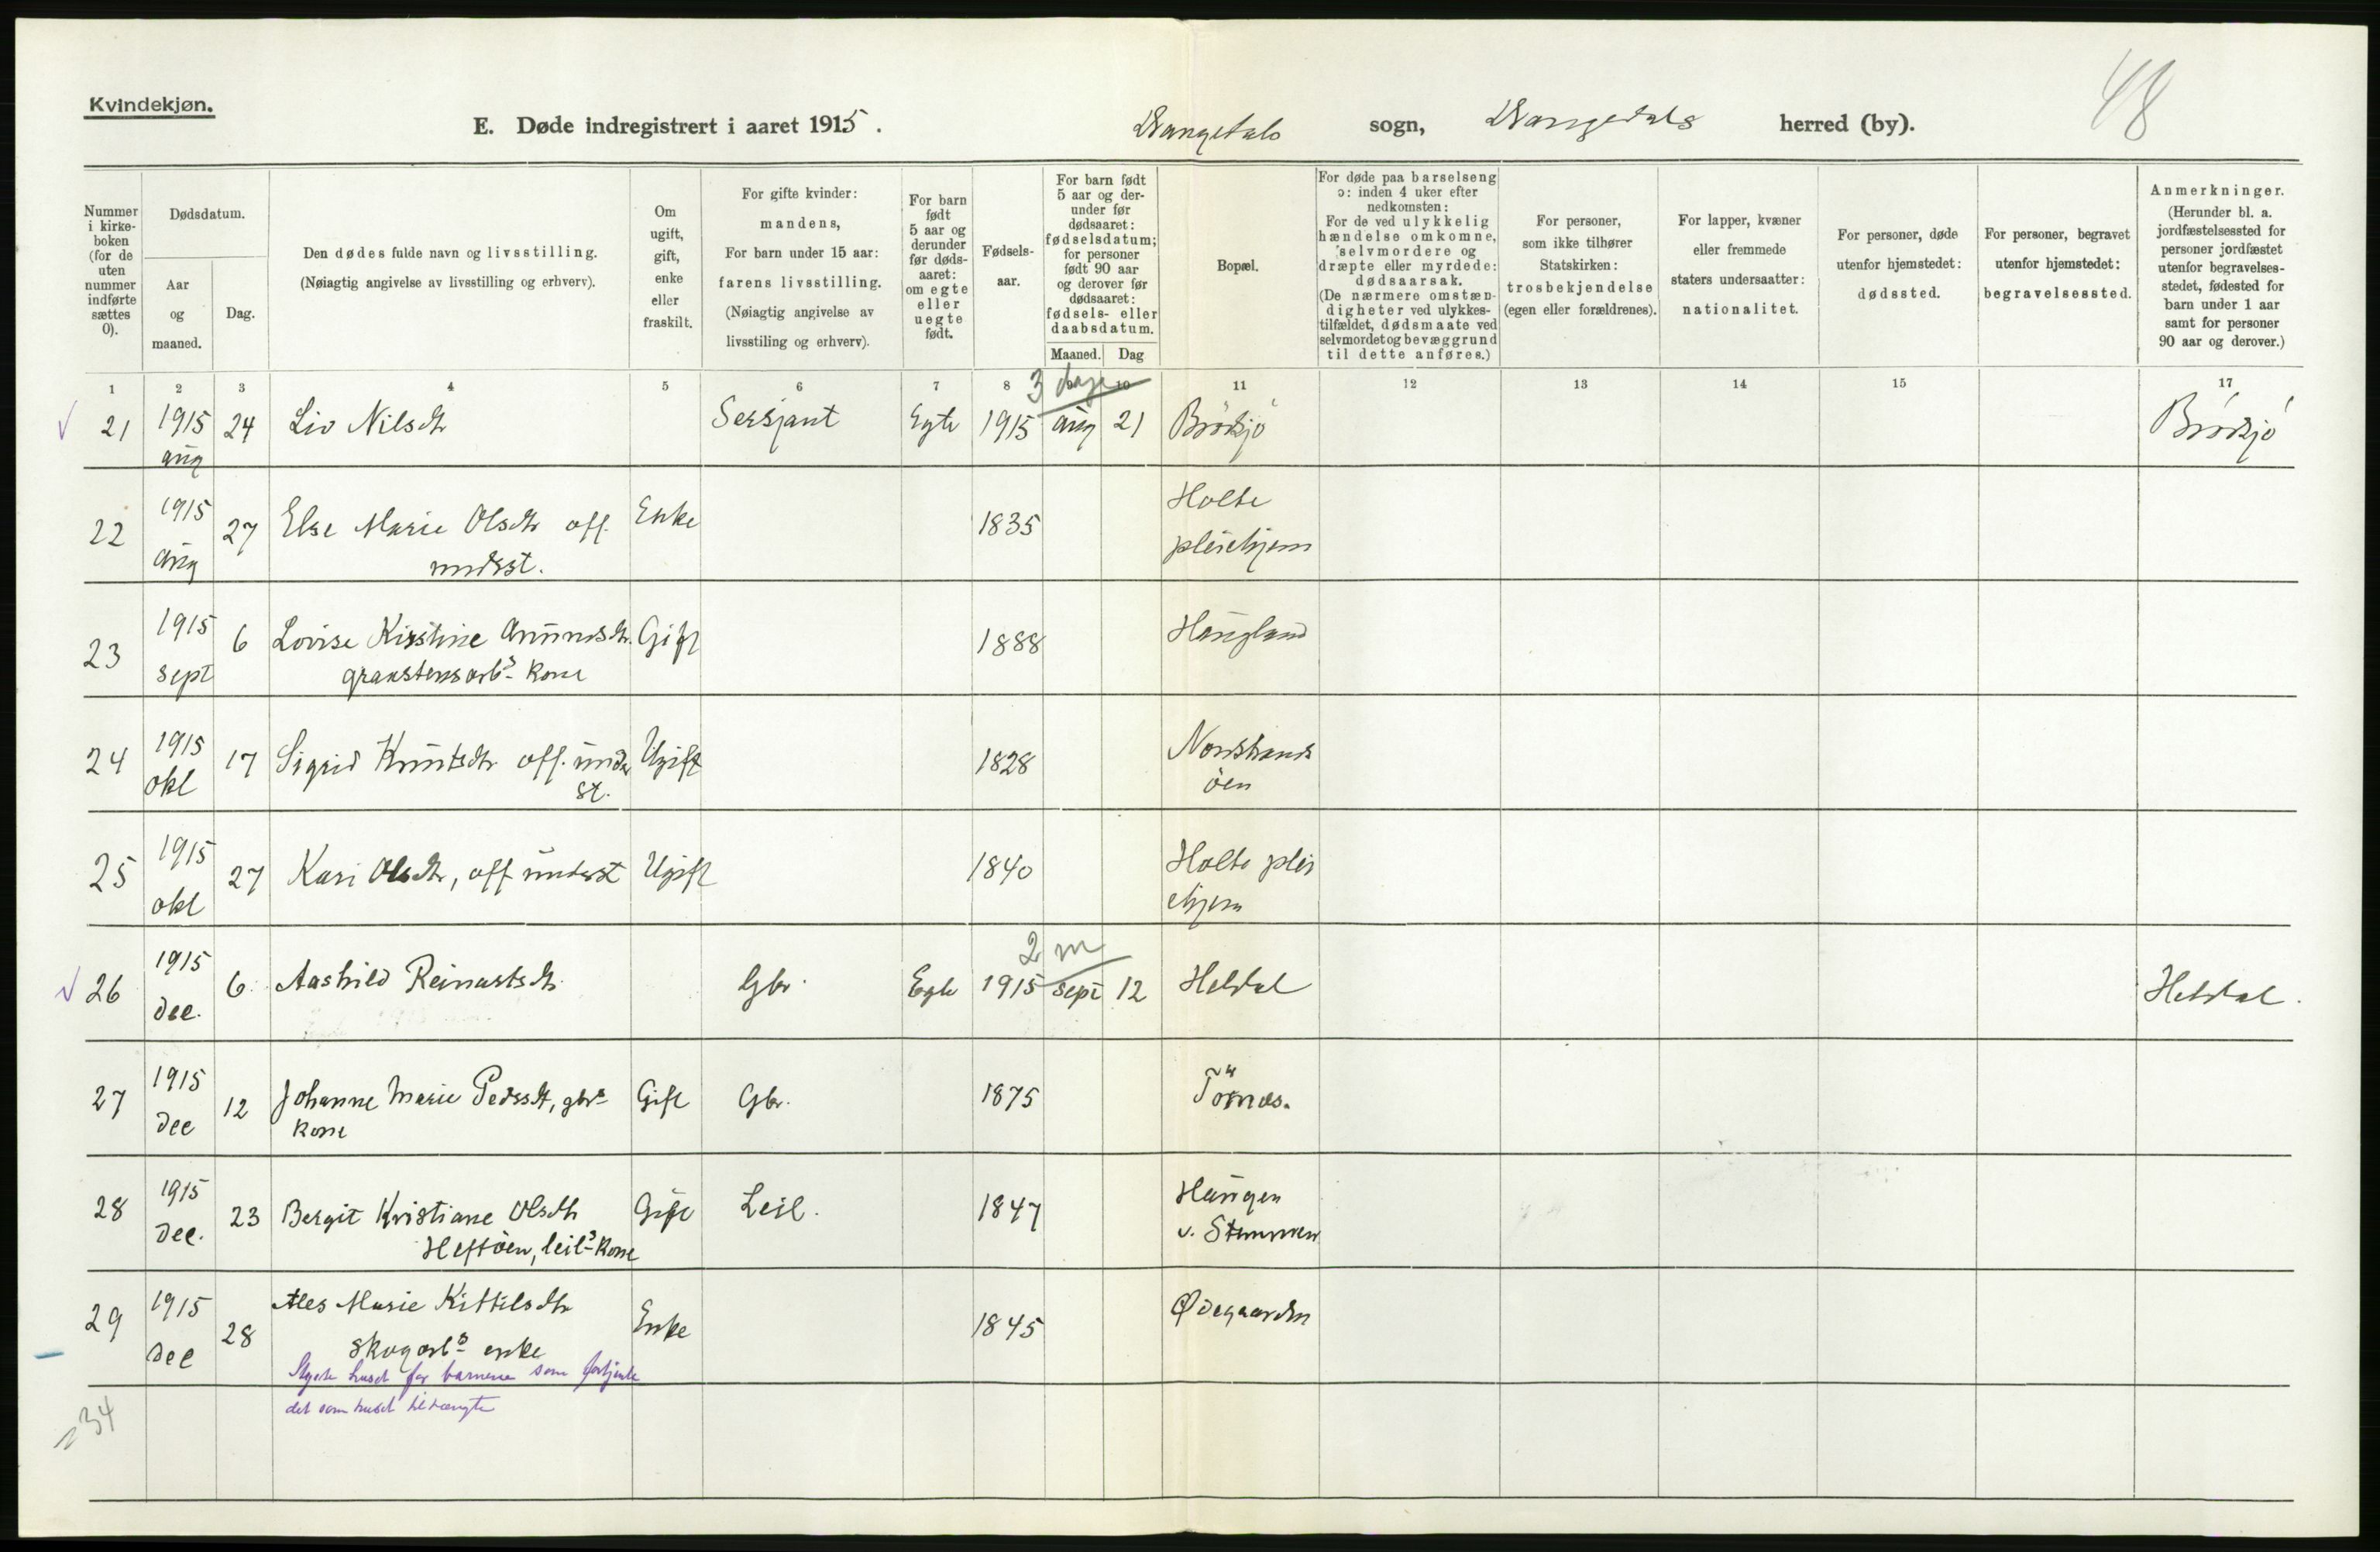 Kvindekjøn.
48
E. Døde indregistrert i aaret 1915. Drangedals sogn, Drangedals herred (by).
Nummer i kirkeboken (for de uten nummer indførte sættes 0).
Dødsdatum.
Aar og maaned.
Dag.
Den dødes fulde navn og livsstilling.
(Nøiagtig angivelse av livsstilling og erhverv).
Om ugift, gift, enke eller fraskilt.
For gifte kvinder: mandens,
For barn under 15 aar: farens livsstilling.
(Nøiagtig angivelse av livsstiling og erhverv).
For barn født 5 aar og derunder før dødsaaret: om egte eller uegte født.
Fødselsaar.
For barn født 5 aar og derunder før dødsaaret: fødselsdatum; for personer født 90 aar og derover før dødsaaret: fødsels- eller daabsdatum.
Maaned. Dag
Bopæl.
For døde paa barselseng ɔ: inden 4 uker efter nedkomsten: For de ved ulykkelig hændelse omkomne, selvmordere og dræpte eller myrdede: dødsaarsak.
(De nærmere omstændigheter ved ulykkestilfældet, dødsmaate ved selvmordet og bevæggrund til dette anføres.)
For personer, som ikke tilhører Statskirken: trosbekjendelse (egen eller forældrenes).
For lapper, kvæner eller fremmede staters undersaatter: nationalitet.
For personer, døde utenfor hjemstedet: dødssted.
For personer, begravet utenfor hjemstedet: begravelsessted.
Anmerkninger.
(Herunder bl. a. jordfæstelsessted for personer jordfæstet utenfor begravelsesstedet, fødested for barn under 1 aar samt for personer 90 aar og derover.)
1 2 3 4 5 6 7 8 9 10 11 12 13 14 15 17
3 dage
21 1915 aug 24 Liv Nilsdtr Sersjant Egte 1915 aug 21 Brødsjø Brødsjø
22 1915 aug 27 Else Marie Olsdtr off. underst. Enke 1835 Holte pleiehjem
23 1915 sept 6 Lovise Kirstine Amundsdtr. granstensarbs kone Gift 1888 Haugland
24 1915 okt 17 Sigrid Knutsdtr off. underst. Ugift 1828 Nordstrandsöen
25 1915 okt 27 Kari Olsdtr, off underst Ugift 1840 Holte pleiehjem
2 m
26 1915 dec. 6 Aashild Reinertsdtr. Gbr. Egte 1915 sept 12 Heldal Heldal.
27 1915 dec 12 Johanne Marie Pedersdt, gbrs kone Gift Gbr. 1875 Törnes.
28 1915 dec. 23 Bergit Kristiane Olsdtr Heftöen, leils kone Gift Leil. 1847 Haugen v. Stemmen
29 1915 dec 28 Ales Marie Kittilsdtr skogarbs enke Enke 1845 Ødegaarden
Styrte huset for barnene som fortjente
det som huset tiltrængte
34